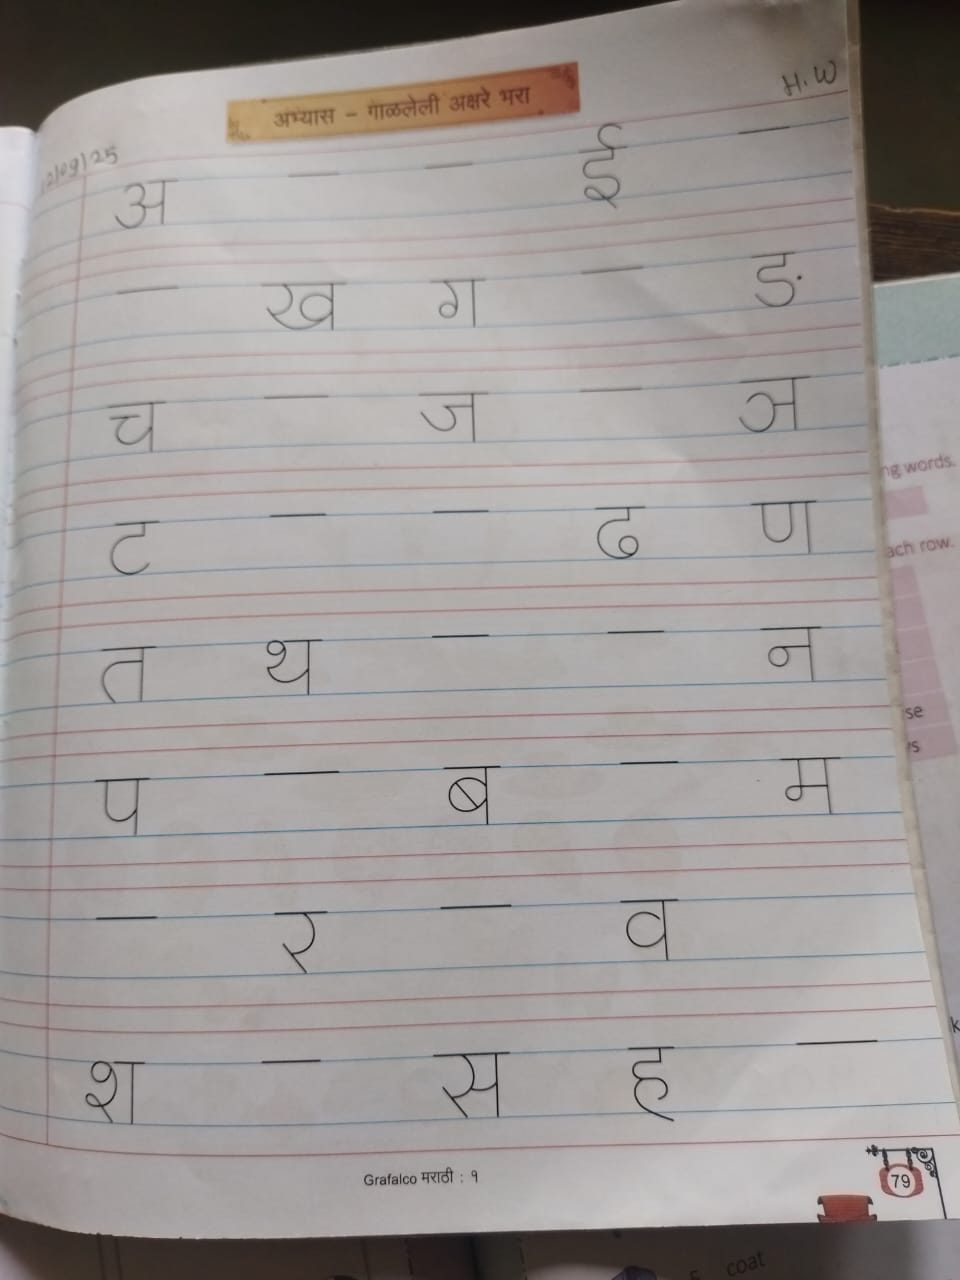 H.W
अभ्यास - गाळलेली अक्षरे भरा
12/09/25
अ _ _ ई _
_ ख ग _ ङ
च _ ज _ ञ
ट _ _ ढ ण
त थ _ _ न
प _ ब _ म
_ र _ व
श _ स ह _
Grafalco मराठी : १
79
ng words.
ach row.
se
coat